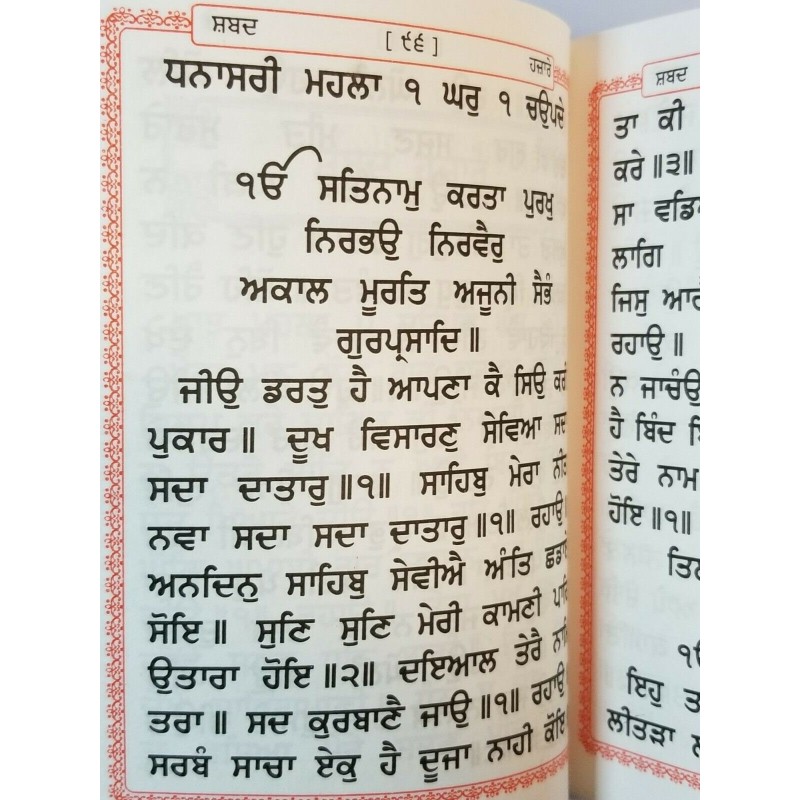 ਸ਼ਬਦ
[ ੯੬ ]
ਹਜ਼ਾਰੇ
ਧਨਾਸਰੀ ਮਹਲਾ ੧ ਘਰੁ ੧ ਚਉਪਦੇ
ੴ ਸਤਿਨਾਮੁ ਕਰਤਾ ਪੁਰਖੁ
ਨਿਰਭਉ ਨਿਰਵੈਰੁ
ਅਕਾਲ ਮੂਰਤਿ ਅਜੂਨੀ ਸੈਭੰ
ਗੁਰਪ੍ਰਸਾਦਿ॥
ਜੀਉ ਡਰਤੁ ਹੈ ਆਪਣਾ ਕੈ ਸਿਉ
ਪੁਕਾਰ॥ ਦੂਖ ਵਿਸਾਰਣੁ ਸੇਵਿਆ
ਸਦਾ ਦਾਤਾਰੁ॥੧॥ ਸਾਹਿਬੁ ਮੇਰਾ
ਨਵਾ ਸਦਾ ਸਦਾ ਦਾਤਾਰੁ॥੧॥ ਰਹਾਉ॥
ਅਨਦਿਨੁ ਸਾਹਿਬੁ ਸੇਵੀਐ ਅੰਤਿ
ਸੋਇ॥ ਸੁਣਿ ਸੁਣਿ ਮੇਰੀ ਕਾਮਣੀ
ਉਤਾਰਾ ਹੋਇ॥੨॥ ਦਇਆਲ ਤੇਰੈ
ਤਰਾ॥ ਸਦ ਕੁਰਬਾਣੈ ਜਾਉ॥੧॥ ਰਹਾਉ॥
ਸਰਬੰ ਸਾਚਾ ਏਕੁ ਹੈ ਦੂਜਾ ਨਾਹੀ ਕੋਇ॥
ਸ਼ਬਦ
ਤਾ ਕੀ
ਕਰੇ॥੩॥
ਸਾ
ਲਾਗਿ
ਜਿਸੁ
ਰਹਾਉ॥
ਨ ਜਾਚੰਉ
ਹੈ ਬਿੰਦ
ਤੇਰੇ ਨਾਮ
ਹੋਇ॥੧॥
ਇਹੁ
ਲੀਤੜਾ